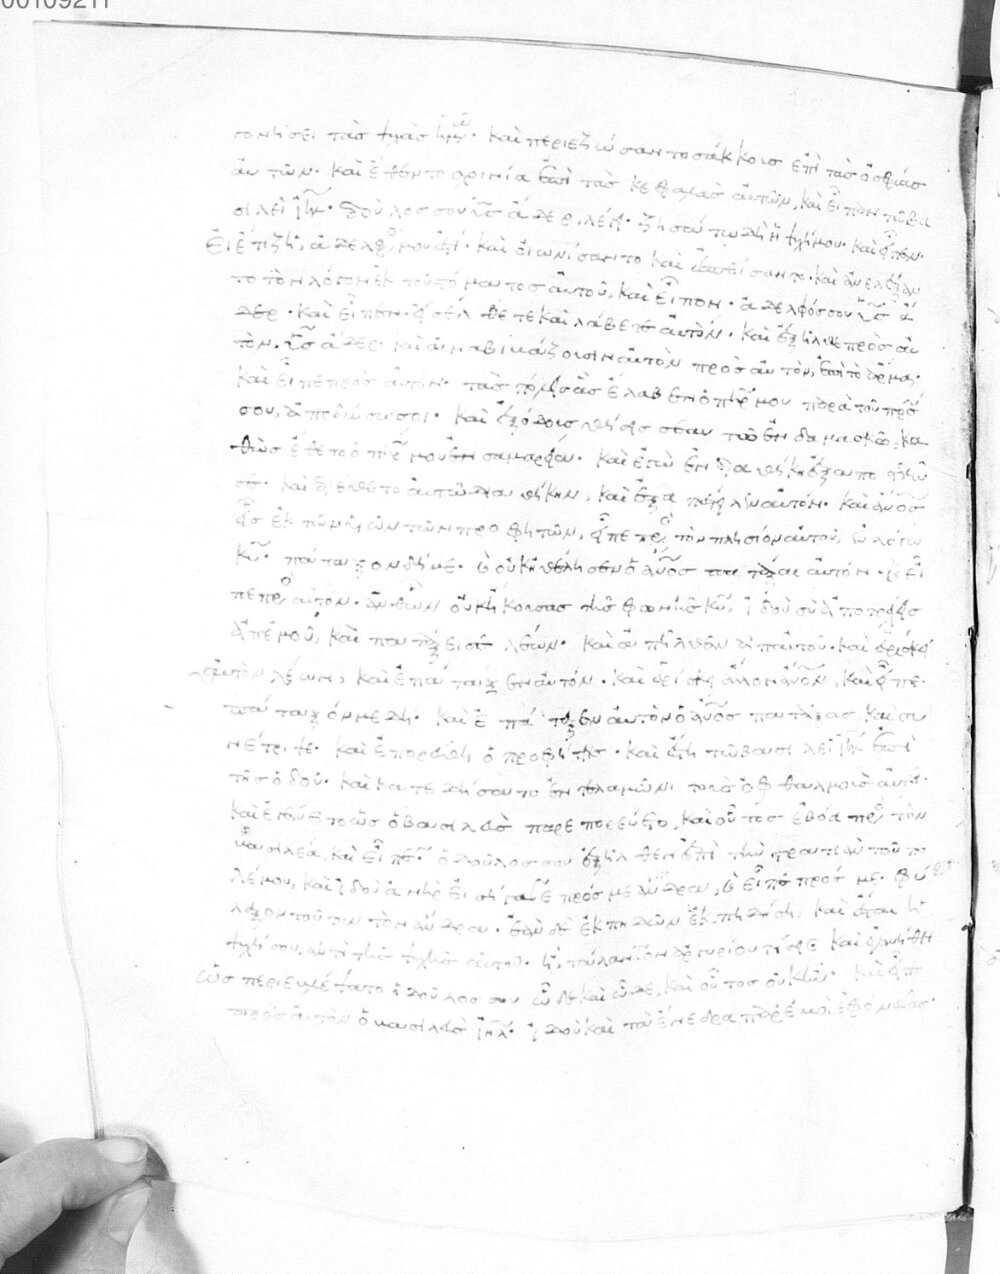 00109211
γονήσει τὰς ψυχὰς ἡμῶν· καὶ περιεζώσαντο σάκκοις ἐπὶ τὰς ὀσφύας
αὐτῶν· καὶ ἔθεντο σχοινία ἐπὶ τὰς κεφαλὰς αὐτῶν, καὶ εἶπον τῷ βα
σιλεῖ ιηλ· δοῦλός σου υἱὸς ἄδερ λέγει· ζησάτω δὴ ἡ ψυχή μου· καὶ εἶπεν·
εἰ ἔτι ζῇ, ἀδελφός μου ἐστί· καὶ οἰωνίσαντο καὶ ἐσπείσαντο· καὶ ἀνελέξαν
το τὸν λόγον ἐκ τοῦ στόματος αὐτοῦ, καὶ εἶπον· ἀδελφός σου υἱὸς ἄ
δερ· καὶ εἶπεν· εἰσέλθετε καὶ λάβετε αὐτόν· καὶ ἐξῆλθε πρὸς αὐ
τὸν, υἱὸς ἄδερ· καὶ ἀναβιβάζουσιν αὐτὸν πρὸς αὐτὸν, ἐπὶ τὸ ἅρμα·
καὶ εἶπε πρὸς αὐτόν· τὰς πόλεις ἃς ἔλαβεν ὁ πηρ μου παρὰ τοῦ πρς
σου, ἀποδώσω σοι· καὶ ἐξόδους θήσεις σεαυτῷ ἐν δαμασκῷ, κα
θὼς ἔθετο ὁ πηρ μου ἐν σαμαρείᾳ· καὶ ἐγὼ ἐν διαθήκῃ ἐξαποστελῶ
σε· καὶ διέθετο αὐτῷ διαθήκην, καὶ ἐξαπέστειλεν αὐτόν· καὶ ἀνος
εἷς ἐκ τῶν υἱῶν τῶν προφητῶν, εἶπε πρὸς τὸν πλησίον αὐτοῦ, ἐν λόγῳ
κυ· πάταξον δή με· καὶ οὐκ ἠθέλησεν ὁ ανος πατάξαι αὐτόν· καὶ εἶ
πε πρὸς αὐτόν· ἀνθ' ὧν οὐκ ἤκουσας τῆς φωνῆς κυ, ἰδοὺ σὺ ἀποτρέχεις
ἀπ' ἐμοῦ, καὶ πατάξει σε λέων· καὶ ἀπῆλθεν ἀπ' αὐτοῦ· καὶ εὑρίσκει
αὐτὸν λέων, καὶ ἐπάταξεν αὐτόν· καὶ εὑρίσκει ἄλλον ανον, καὶ εἶπε·
πάταξόν με δή· καὶ ἐπάταξεν αὐτὸν ὁ ανος πατάξας, καὶ συ
νέτριψε· καὶ ἐπορεύθη ὁ προφήτης· καὶ ἔστη τῷ βασιλεῖ ιηλ ἐπὶ
τῆς ὁδοῦ· καὶ κατεδήσατο ἐν τελαμῶνι τοὺς ὀφθαλμοὺς αὐτοῦ·
καὶ ἐγένετο ὡς ὁ βασιλεὺς παρεπορεύετο, καὶ οὗτος ἐβόα πρὸς τὸν
βασιλέα, καὶ εἶπεν· ὁ δοῦλός σου ἐξῆλθεν ἐπὶ τὴν στρατιὰν τοῦ πο
λέμου, καὶ ἰδοὺ ἀνὴρ εἰσήγαγε πρός με ἄνδρα, καὶ εἶπε πρός με· φύ
λαξον τοῦτον τὸν ἄνδρα· ἐὰν δὲ ἐκπηδῶν ἐκπηδήσῃ, καὶ ἔσται ἡ
ψυχή σου, ἀντὶ τῆς ψυχῆς αὐτοῦ· ἢ τάλαντον ἀργυρίου στήσεις· καὶ ἐγενήθη
ὡς περιεβλέψατο ὁ δοῦλός σου ὧδε καὶ ὧδε, καὶ οὗτος οὐκ ἦν· καὶ εἶπε
πρὸς αὐτὸν ὁ βασιλεὺς ιηλ· ἰδοὺ καὶ τὰ ἔνεδρα παρ' ἐμοὶ ἐφόνευσας·